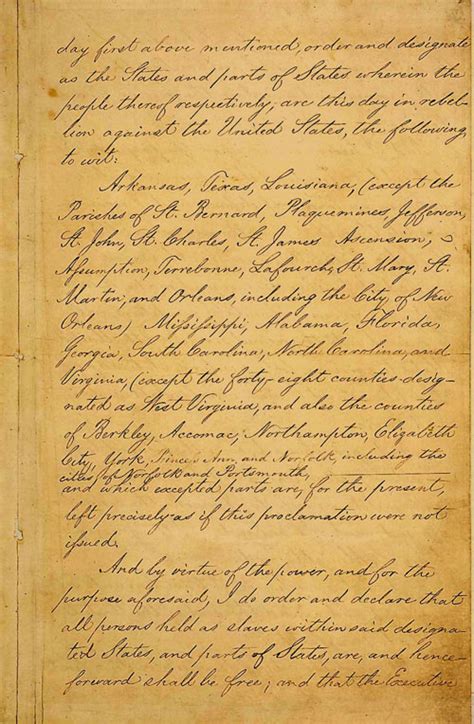 day first above mentioned, order and designate
as the States and parts of States wherein the
people thereof respectively, are this day in rebel-
lion against the United States, the following
to wit:
Arkansas, Texas, Louisiana, (except the
Parishes of St. Bernard, Plaquemines, Jefferson,
St. John, St. Charles, St. James Ascension,
Assumption, Terrebonne, Lafourche, St. Mary, St.
Martin, and Orleans, including the City of New
Orleans) Mississippi, Alabama, Florida,
Georgia, South Carolina, North Carolina, and
Virginia, (except the forty-eight counties desig-
nated as West Virginia, and also the counties
of Berkley, Accomac, Northampton, Elizabeth
City, York, Princess Ann, and Norfolk, including the
cities of Norfolk and Portsmouth,
and which excepted parts are, for the present,
left precisely as if this proclamation were not
issued.
And by virtue of the power, and for the
purpose aforesaid, I do order and declare that
all persons held as slaves within said designa-
ted States, and parts of States, are, and hence-
forward shall be free; and that the Executive